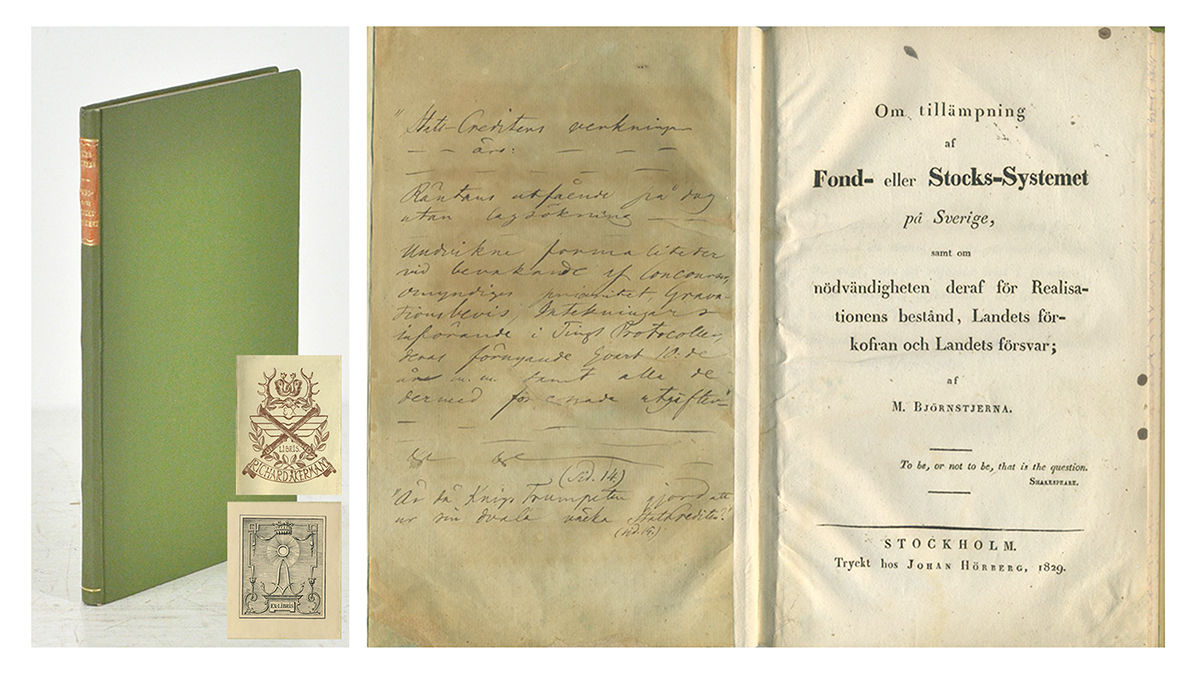 LIBRIS
RICHARD ÅKERMAN
EX LIBRIS
"Stats-Creditens verkningar
äro:
Räntans utfående på dag
utan lagsökning
Undvikne formaliteter
vid bevakande af concourser,
omyndiges prioritet, Grava-
tionsbevis, Inteckningars
införande i Tings Protocoller,
deras förnyande hvart 10:de
år m.m. samt alla de
dermed förenade utgifter"
(Sid. 14.)
"Är då Krigs Trumpeten gjord att
ur sin dvala väcka StatsCrediten?"
(sid. 19.)
Om tillämpning
af
Fond- eller Stocks-Systemet
på Sverige,
samt om
nödvändigheten deraf för Realisa-
tionens bestånd, Landets för-
kofran och Landets försvar;
af
M. BJÖRNSTJERNA.
To be, or not to be, that is the question.
SHAKESPEARE.
STOCKHOLM.
Tryckt hos JOHAN HÖRBERG, 1829.